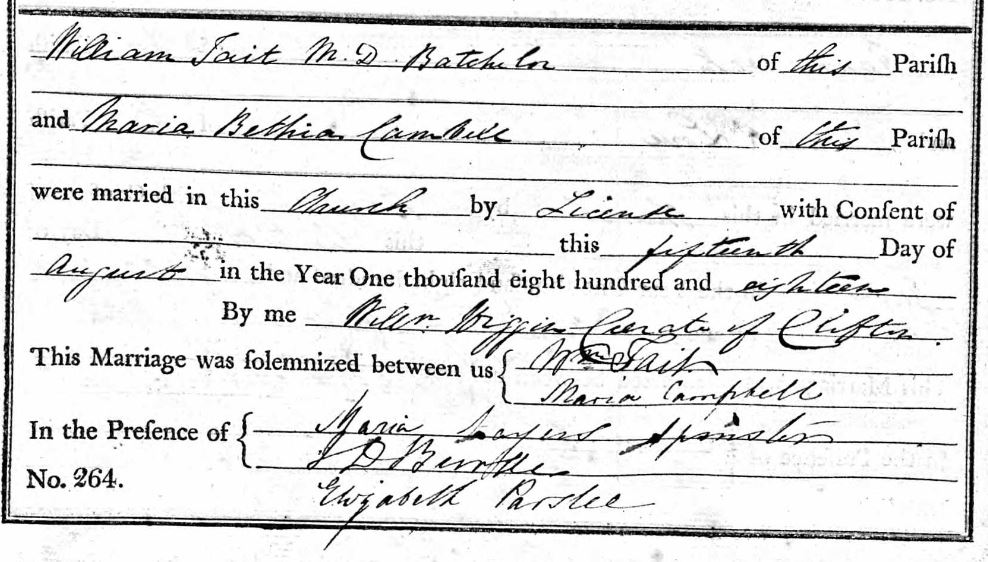 William Tait M.D. Batchelor of this Pariſh
and Maria Bethia Cambell of this Pariſh
were married in this Church by License with Conſent of
this fifteenth Day of
August in the Year One thouſand eight hundred and eighteen
By me Willm. Wiggin Curate of Clifton.
This Marriage was ſolemnized between us { Wm Tait
Maria Campbell
In the Preſence of { Maria Spinster
J D
Elizabeth Parslee
No. 264.